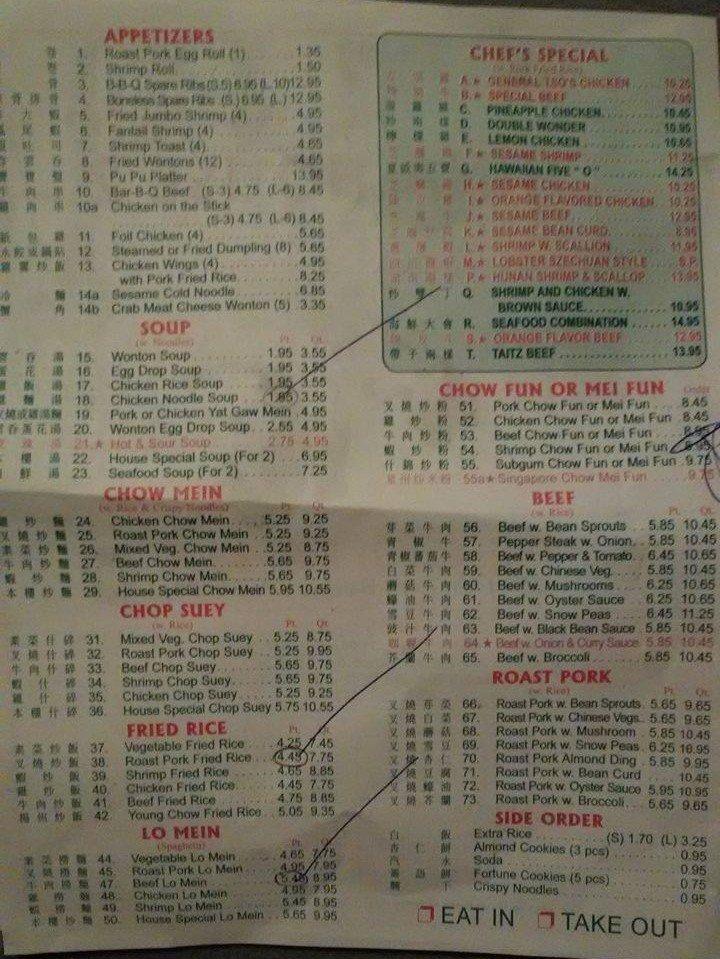 APPETIZERS
1. Roast Pork Egg Roll (1) 1.35
2. Shrimp Roll 1.50
3. B-B-Q Spare Ribs (S.5) 6.95 (L.10) 12.95
4. Boneless Spare Ribs (S.) 6.95 (L.) 12.95
5. Fried Jumbo Shrimp (4) 4.95
6. Fantail Shrimp (4) 4.95
7. Shrimp Toast (4) 4.65
8. Fried Wontons (12) 4.65
9. Pu Pu Platter 13.95
10. Bar-B-Q Beef (S-3) 4.75 (L-6) 8.45
10a Chicken on the Stick
(S-3) 4.75 (L-6) 8.45
11 Foil Chicken (4) 5.65
12 Steamed or Fried Dumpling (8) 5.65
13. Chicken Wings (4) 4.95
with Pork Fried Rice 8.25
14a Sesame Cold Noodle 6.85
14b Crab Meat Cheese Wonton (5) 3.35
SOUP
(w. Noodles) Pt. Qt.
15. Wonton Soup 1.95 3.55
16. Egg Drop Soup 1.95 3.55
17. Chicken Rice Soup 1.95 3.55
18. Chicken Noodle Soup 1.95 3.55
19. Pork or Chicken Yat Gaw Mein 4.95
20. Wonton Egg Drop Soup 2.55 4.95
21.★ Hot & Sour Soup 2.75 4.95
22. House Special Soup (For 2) 6.95
23. Seafood Soup (For 2) 7.25
CHOW MEIN
(w. Rice & Crispy Noodles) Pt. Qt.
雞炒麵 24. Chicken Chow Mein 5.25 9.25
叉燒炒麵 25. Roast Pork Chow Mein 5.25 9.25
素菜炒麵 26. Mixed Veg. Chow Mein 5.25 8.75
牛肉炒麵 27. Beef Chow Mein 5.65 9.75
蝦炒麵 28. Shrimp Chow Mein 5.65 9.75
本樓炒麵 29. House Special Chow Mein 5.95 10.55
CHOP SUEY
(w. Rice) Pt. Qt.
素菜什碎 31. Mixed Veg. Chop Suey 5.25 8.75
叉燒什碎 32. Roast Pork Chop Suey 5.25 9.95
牛肉什碎 33. Beef Chop Suey 5.65 9.75
蝦什碎 34. Shrimp Chop Suey 5.65 9.75
雞什碎 35. Chicken Chop Suey 5.25 9.25
本樓什碎 36. House Special Chop Suey 5.75 10.55
FRIED RICE
Pt. Qt.
素菜炒飯 37. Vegetable Fried Rice 4.25 7.45
叉燒炒飯 38. Roast Pork Fried Rice 4.45 7.75
蝦炒飯 39. Shrimp Fried Rice 4.65 8.85
雞炒飯 40. Chicken Fried Rice 4.45 7.75
牛肉炒飯 41. Beef Fried Rice 4.75 8.85
揚州炒飯 42. Young Chow Fried Rice 5.05 9.35
LO MEIN
(Spaghetti) Pt. Qt.
素菜撈麵 44. Vegetable Lo Mein 4.65 7.75
叉燒撈麵 45. Roast Pork Lo Mein 4.95 7.95
牛肉撈麵 47. Beef Lo Mein 5.45 8.95
雞撈麵 48. Chicken Lo Mein 4.95 7.95
蝦撈麵 49. Shrimp Lo Mein 5.45 8.95
本樓撈麵 50. House Special Lo Mein 5.65 9.95
CHEF'S SPECIAL
(w. Pork Fried Rice)
A.★ GENERAL TSO'S CHICKEN 10.25
B.★ SPECIAL BEEF 12.95
C. PINEAPPLE CHICKEN 10.45
D. DOUBLE WONDER 10.95
E. LEMON CHICKEN 10.65
F.★ SESAME SHRIMP 11.25
G. HAWAIIAN FIVE "O" 14.25
H.★ SESAME CHICKEN 10.25
I.★ ORANGE FLAVORED CHICKEN 10.25
J.★ SESAME BEEF 12.95
K.★ SESAME BEAN CURD 8.95
L.★ SHRIMP W. SCALLION 11.95
M.★ LOBSTER SZECHUAN STYLE S.P.
P.★ HUNAN SHRIMP & SCALLOP 13.95
炒雙丁 Q. SHRIMP AND CHICKEN W.
BROWN SAUCE 10.95
海鮮大會 R. SEAFOOD COMBINATION 14.95
S.★ ORANGE FLAVOR BEEF 12.95
帶子兩樣 T. TAITZ BEEF 13.95
CHOW FUN OR MEI FUN
Order
叉燒炒粉 51. Pork Chow Fun or Mei Fun 8.45
雞炒粉 52. Chicken Chow Fun or Mei Fun 8.45
牛肉炒粉 53. Beef Chow Fun or Mei Fun 8.95
蝦炒粉 54. Shrimp Chow Fun or Mei Fun 8.95
什錦炒粉 55. Subgum Chow Fun or Mei Fun 9.75
星州炒米粉 55a★ Singapore Chow Mei Fun 9.75
BEEF
(w. Rice) Pt. Qt.
芽菜牛肉 56. Beef w. Bean Sprouts 5.85 10.45
青椒牛 57. Pepper Steak w. Onion 5.85 10.45
青椒蕃茄牛 58. Beef w. Pepper & Tomato 6.45 10.65
白菜牛肉 59. Beef w. Chinese Veg. 5.85 10.45
蘑菇牛肉 60. Beef w. Mushrooms 6.25 10.65
蠔油牛肉 61. Beef w. Oyster Sauce 6.25 10.65
雪豆牛肉 62. Beef w. Snow Peas 6.45 11.25
豉汁牛肉 63. Beef w. Black Bean Sauce 5.85 10.45
64 ★ Beef w. Onion & Curry Sauce 5.85 10.45
芥蘭牛肉 65. Beef w. Broccoli 5.85 10.45
ROAST PORK
(w. Rice) Pt. Qt.
叉燒芽菜 66. Roast Pork w. Bean Sprouts 5.65 9.65
叉燒白菜 67. Roast Pork w. Chinese Vegs. 5.65 9.65
叉燒蘑菇 68. Roast Pork w. Mushroom 5.85 10.45
叉燒雪豆 69. Roast Pork w. Snow Peas 6.25 10.95
叉燒杏仁 70. Roast Pork Almond Ding 5.85 9.95
叉燒豆腐 71. Roast Pork w. Bean Curd 10.45
叉燒蠔油 72. Roast Pork w. Oyster Sauce 5.95 10.95
叉燒芥蘭 73. Roast Pork w. Broccoli 5.65 9.65
SIDE ORDER
白飯 Extra Rice (S) 1.70 (L) 3.25
杏仁餅 Almond Cookies (3 pcs) 0.95
汽水 Soda 0.95
簽語餅 Fortune Cookies (5 pcs) 0.75
麵干 Crispy Noodles 0.95
❒ EAT IN ❒ TAKE OUT